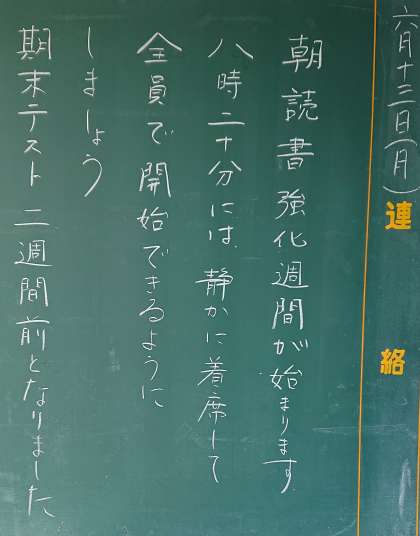 六月十三日(月)
連絡
朝読書強化週間が始まります
八時二十分には、静かに着席して
全員で開始できるように
しましょう
期末テスト二週間前となりました